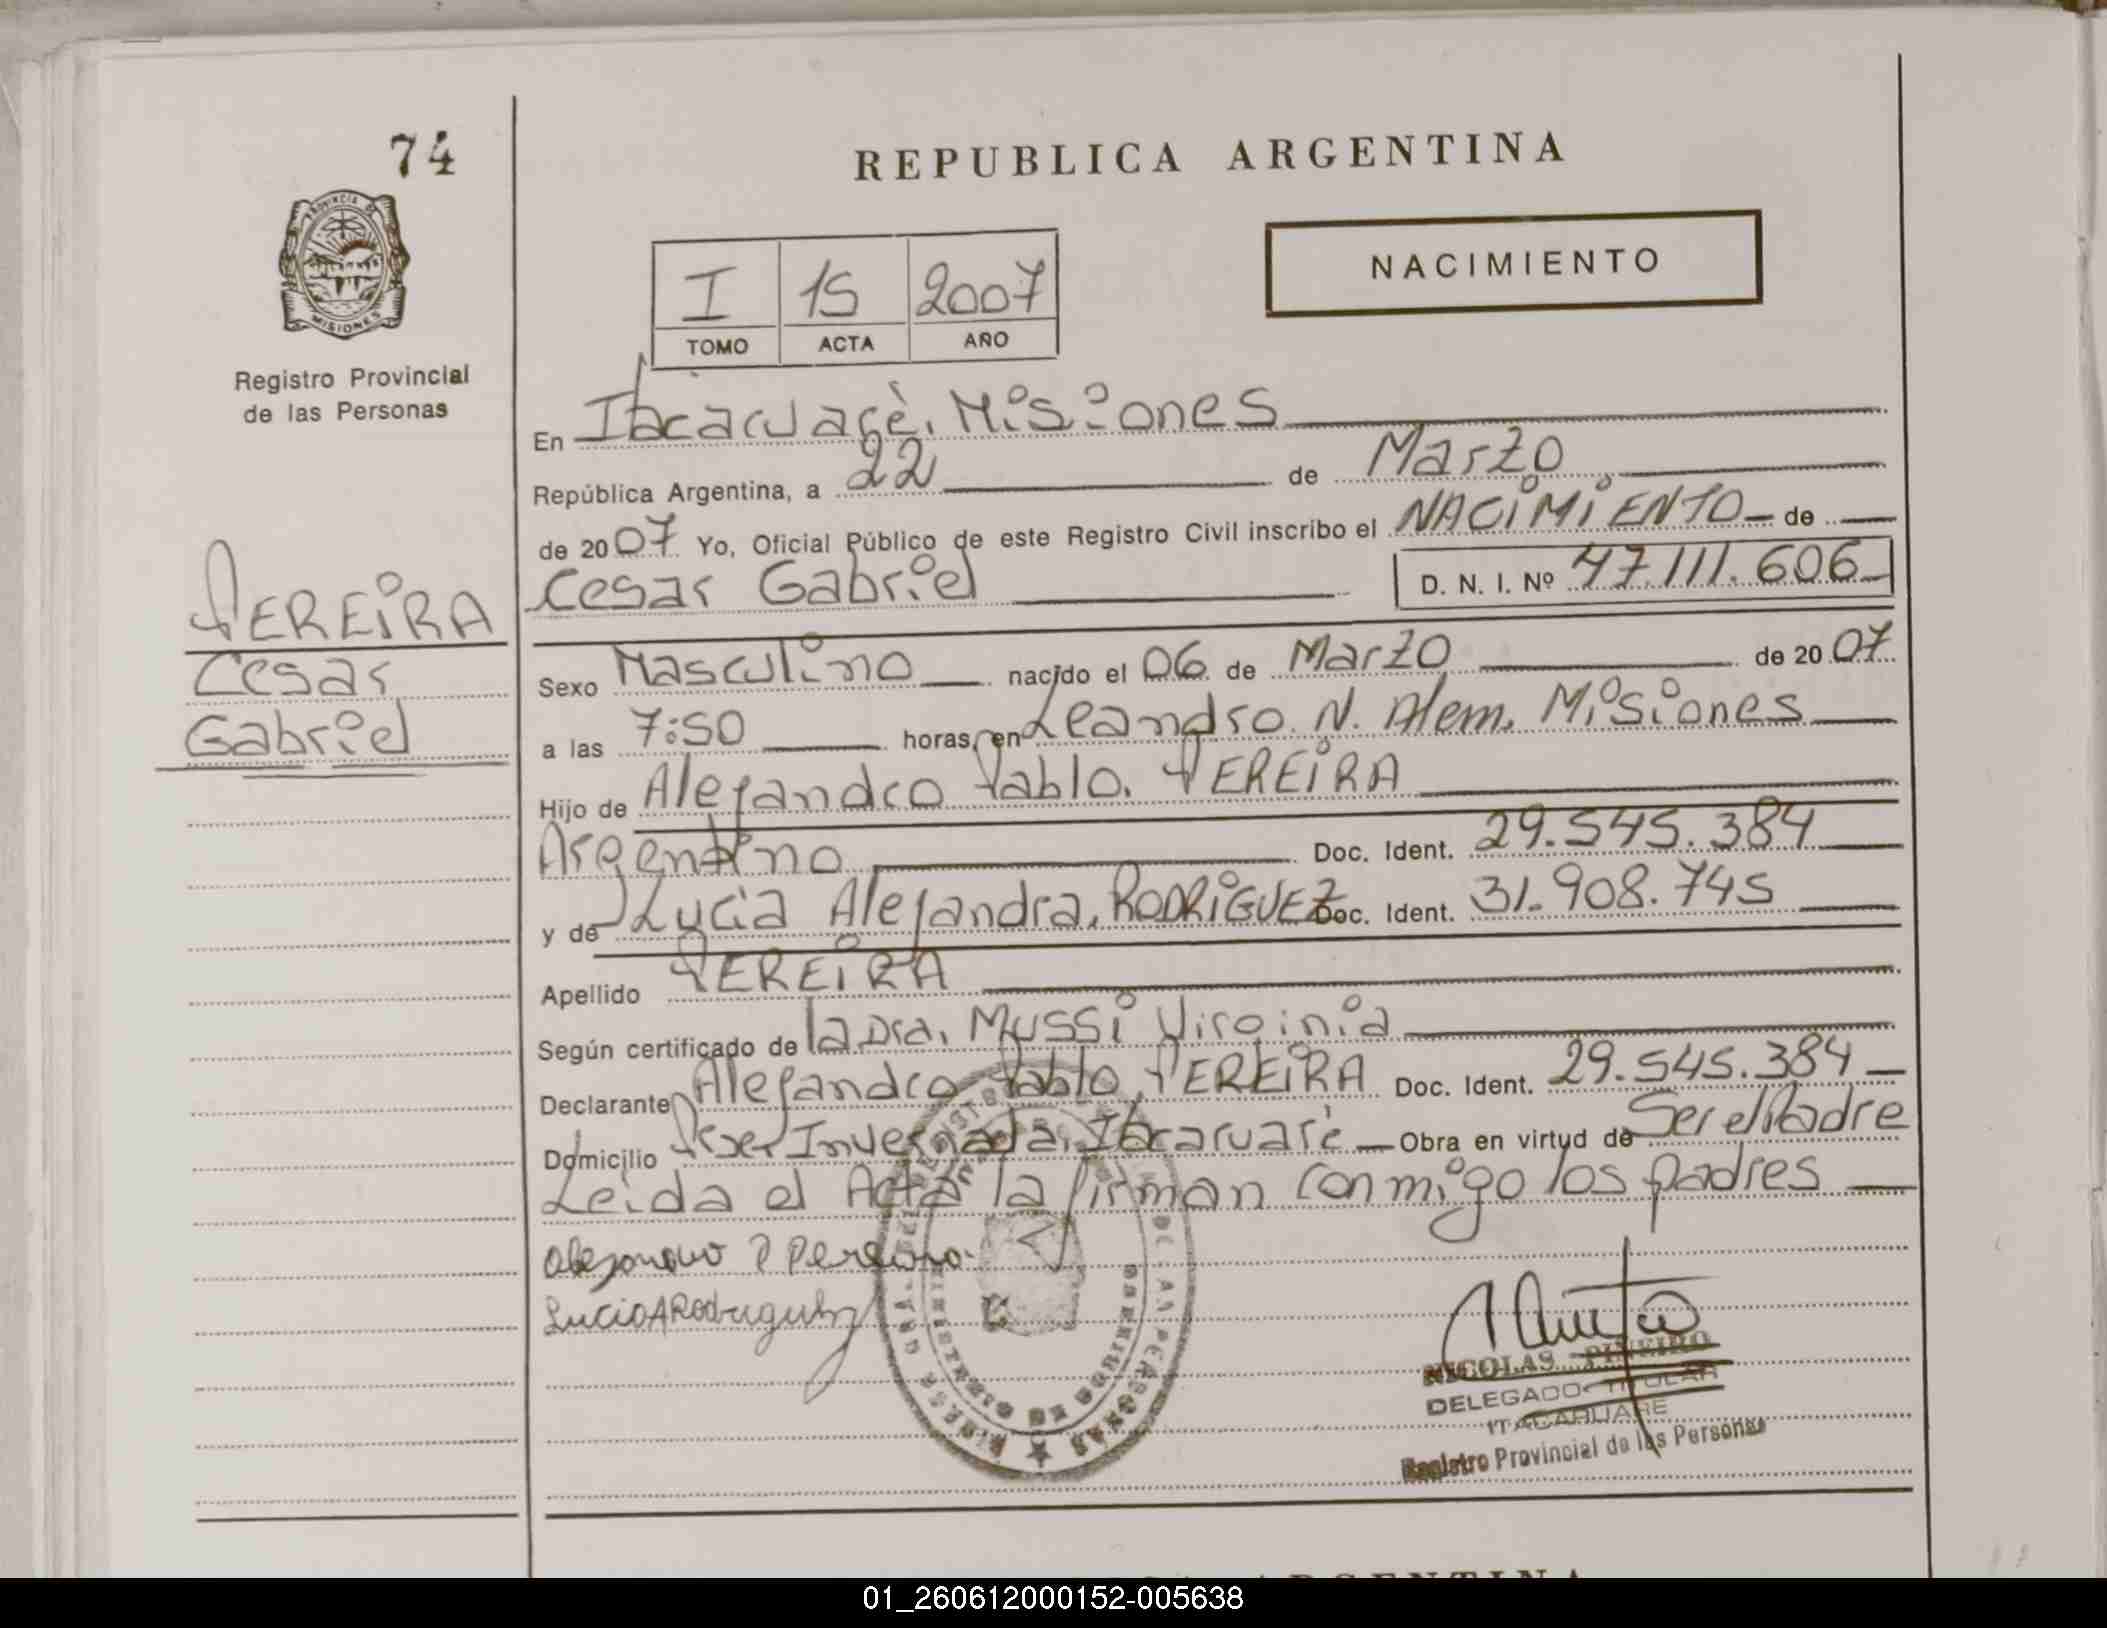 74
REPUBLICA ARGENTINA
PROVINCIA DE
MISIONES
NACIMIENTO
I 15 2007
TOMO ACTA AÑO
Registro Provincial
de las Personas
En Itacaruaré, Misiones
República Argentina, a 22 de Marzo
de 2007 Yo, Oficial Público de este Registro Civil inscribo el NACIMIENTO de
Cesar Gabriel D. N. I. Nº 47.111.606
PEREIRA
Cesar
Gabriel
Sexo Masculino nacido el 06 de Marzo de 2007
a las 7:50 horas, en Leandro. N. Alem. Misiones
Hijo de Alejandro Pablo. PEREIRA
Argentino Doc. Ident. 29.545.384
y de Lucia Alejandra, RODRIGUEZ Doc. Ident. 31.908.745
Apellido PEREIRA
Según certificado de la Dra. Mussi Virginia
Declarante Alejandro Pablo PEREIRA Doc. Ident. 29.545.384
Domicilio Invernada, Itacaruaré Obra en virtud de Ser el Padre
Leida el Acta la firman conmigo los padres
Alejandro P Pereira
Lucia A Rodriguez
NICOLAS PIÑEIRO
DELEGADO TITULAR
ITACARUARE
Registro Provincial de las Personas
01_260612000152-005638